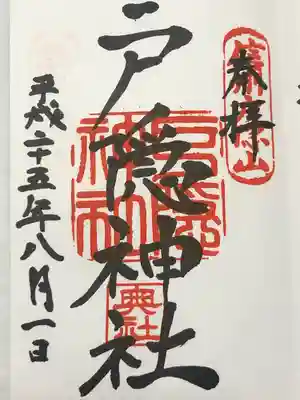 奉拝
戸隠神社
奥社
平成二十五年八月一日